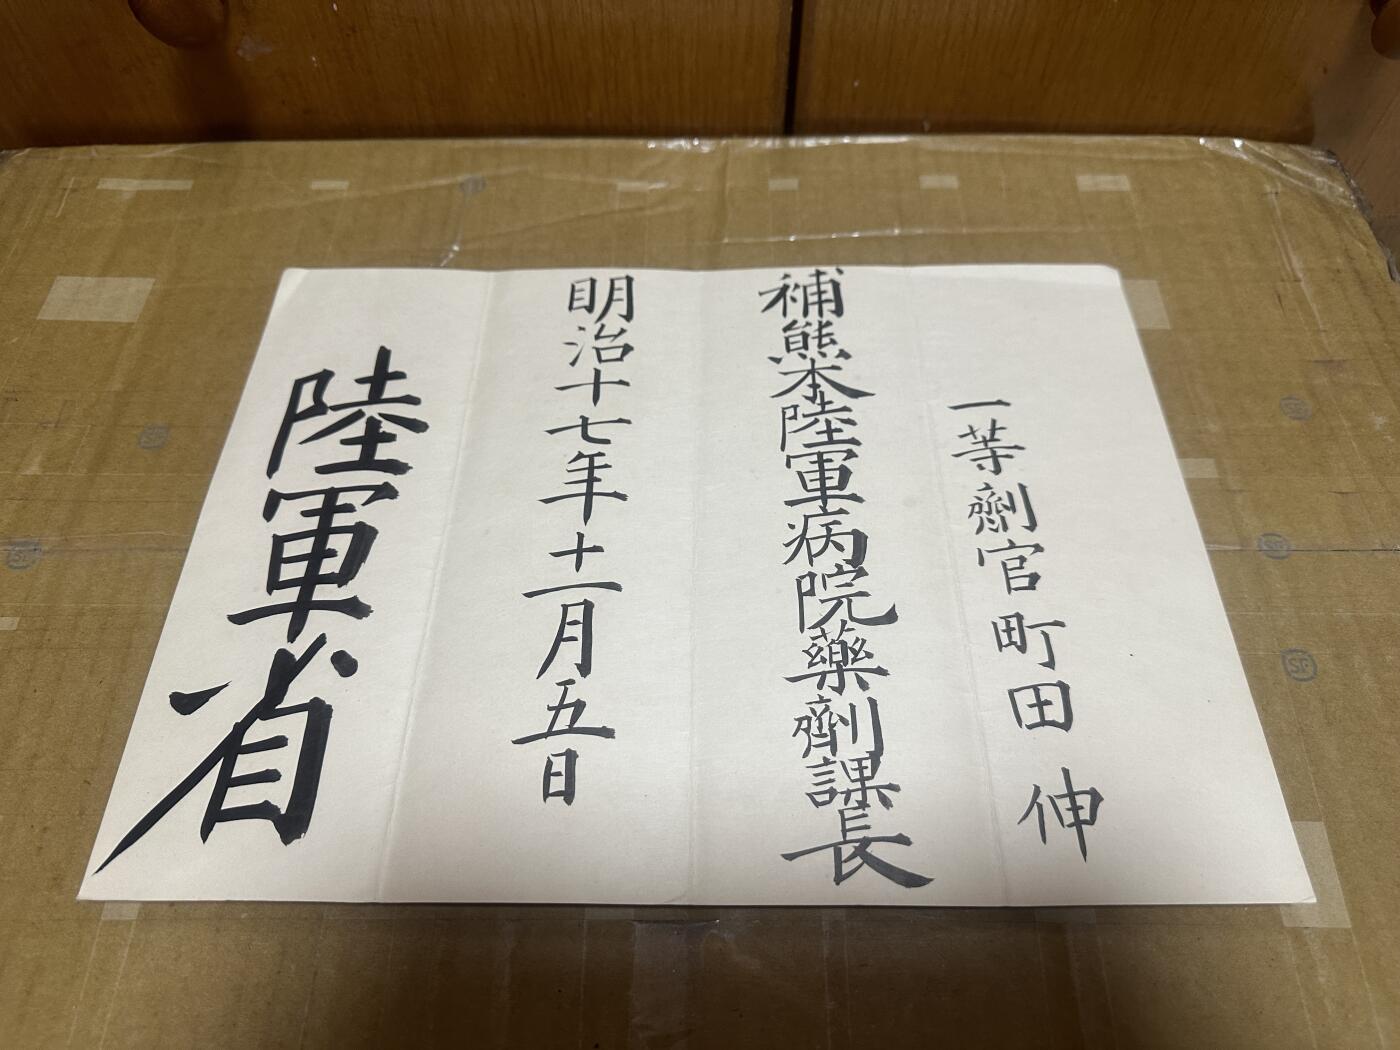 一等劑官町田伸
補熊本陸軍病院藥劑課長
明治十七年十一月五日
陸軍省